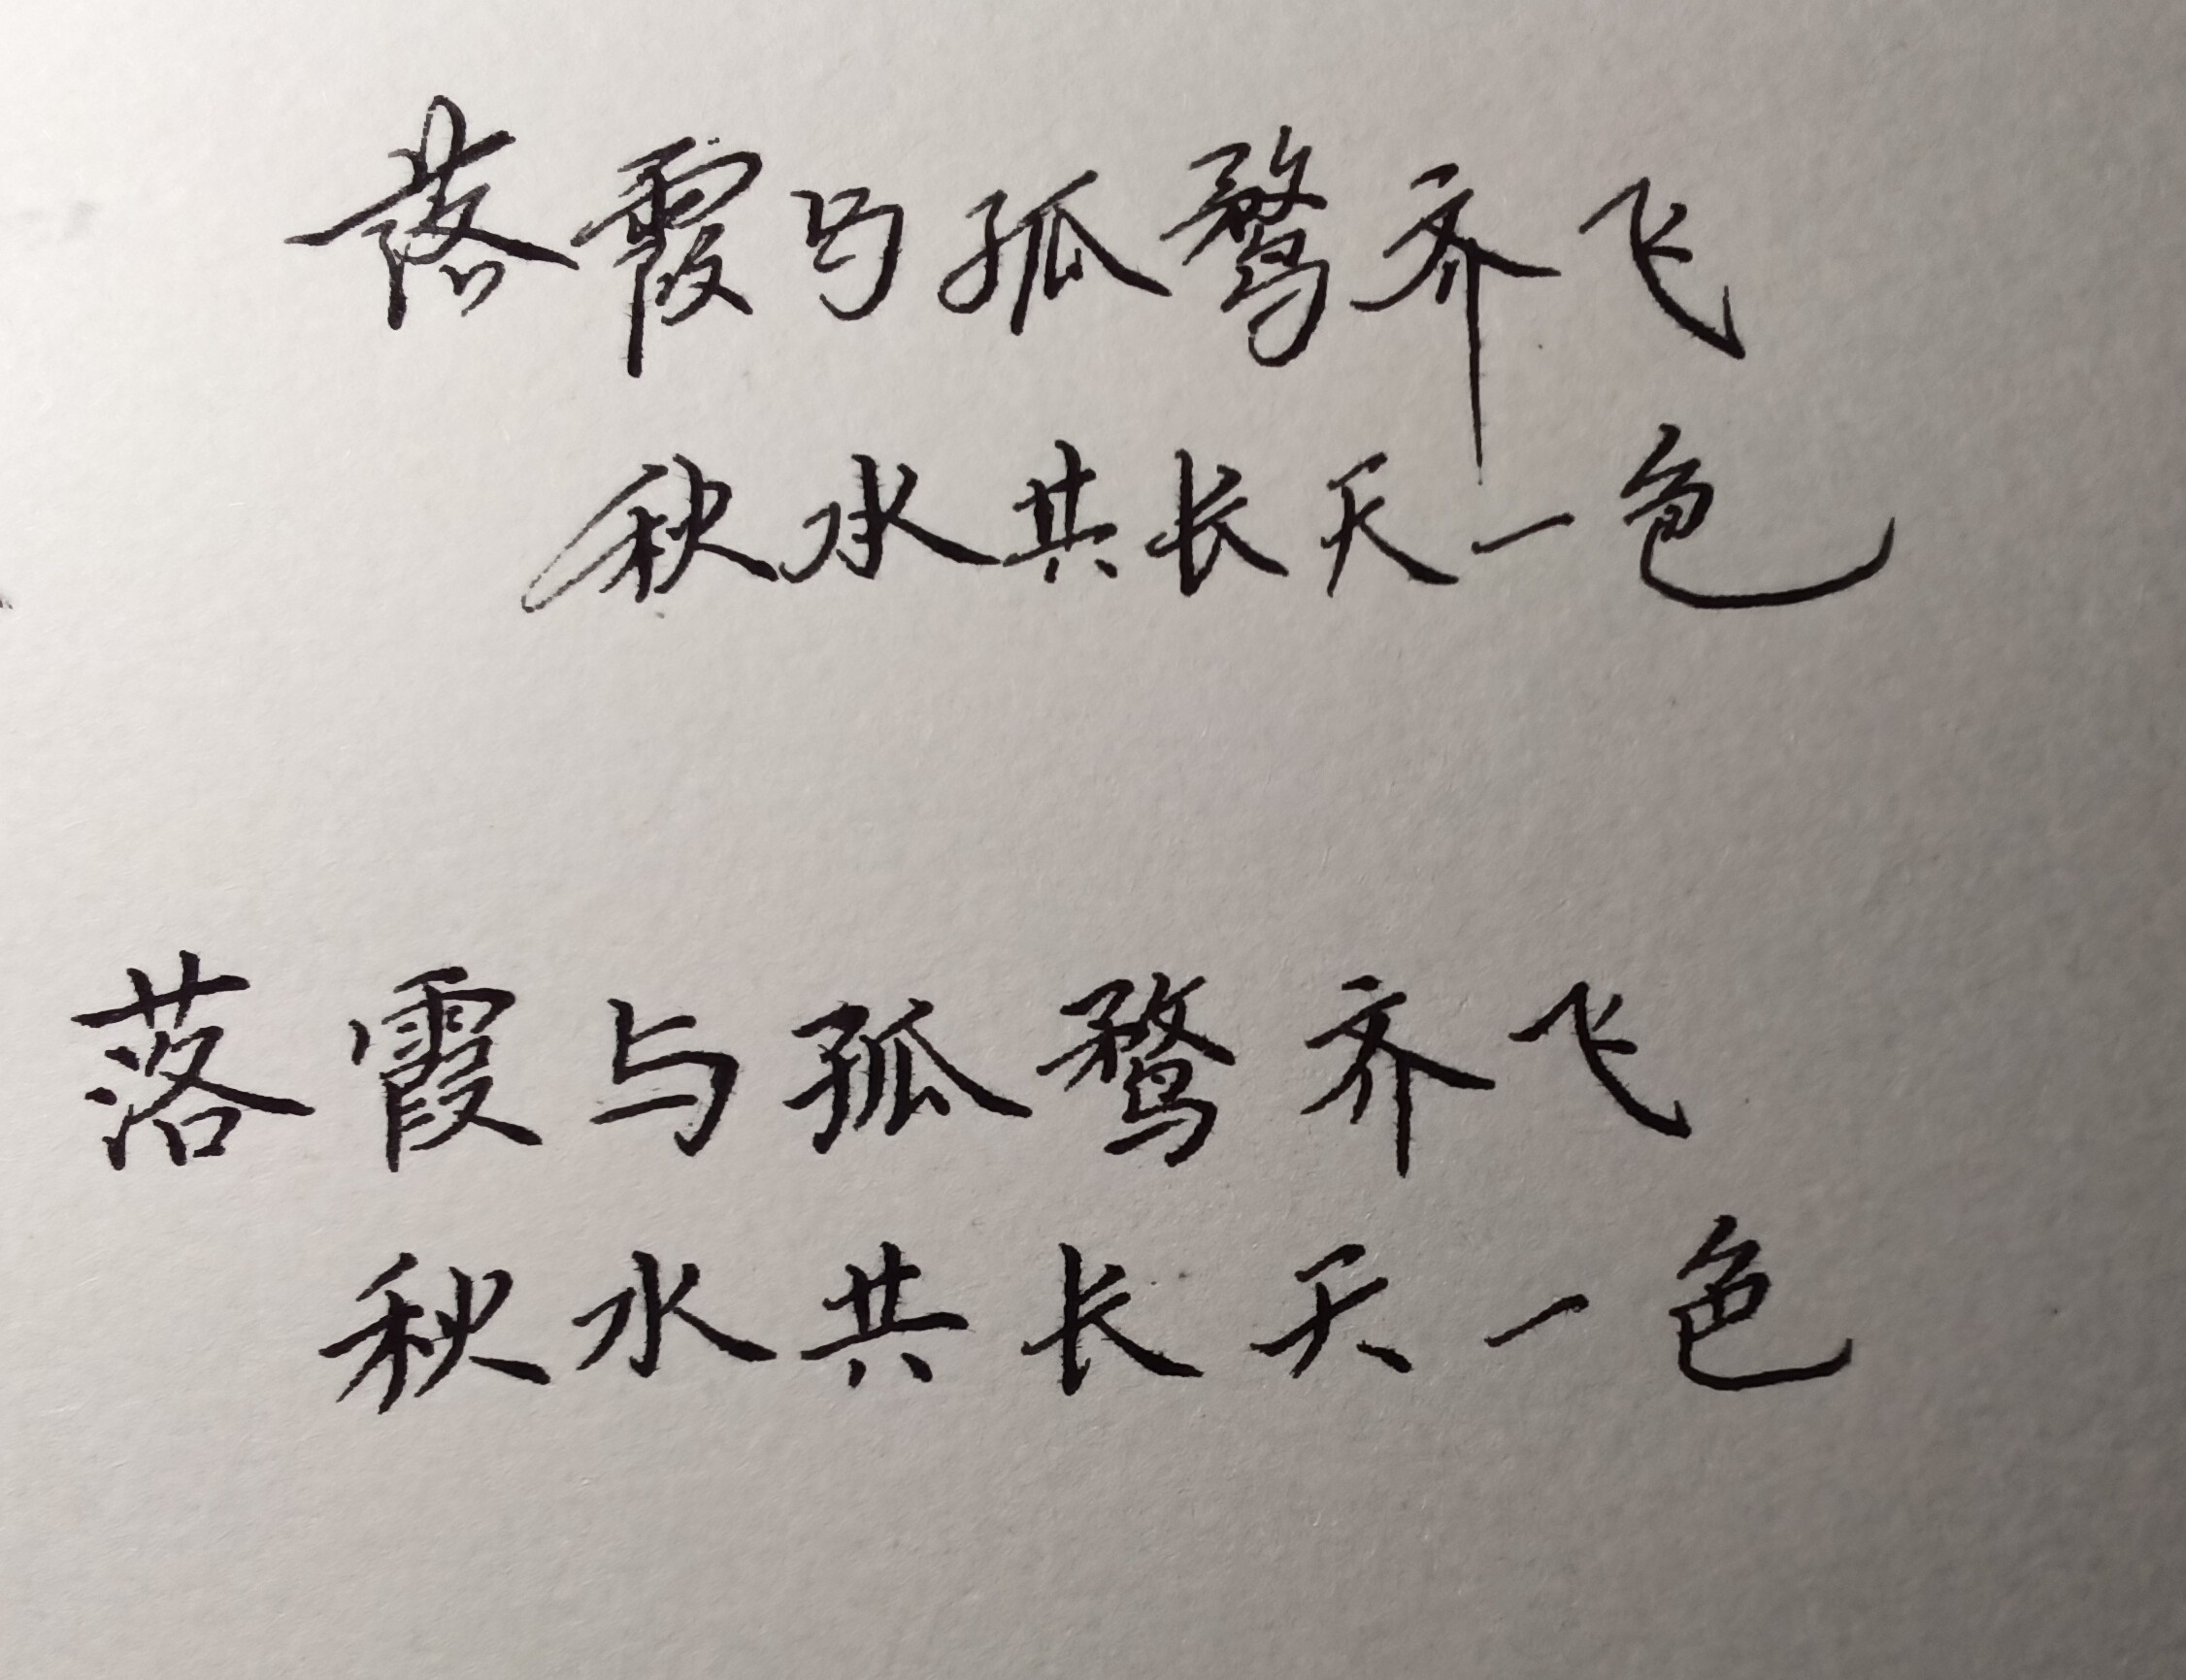 落霞与孤鹜齐飞
秋水共长天一色
落霞与孤鹜齐飞
秋水共长天一色